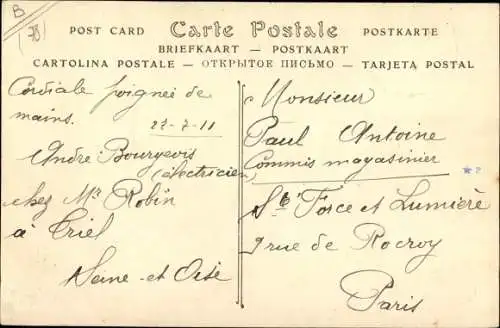 B
(78)
POST CARD Carte Postale POSTKARTE
BRIEFKAART — POSTKAART
CARTOLINA POSTALE — ОТКРЫТОЕ ПИСЬМО — TARJETA POSTAL
Cordiale poignée de
mains.
27-7-11
André Bourgevis
(électricien)
chez Mr Robin
à Triel
Seine-et Oise
Monsieur
Paul Antoine
Commis magasinier
Sté Force et Lumière
9 rue de Rocroy
Paris